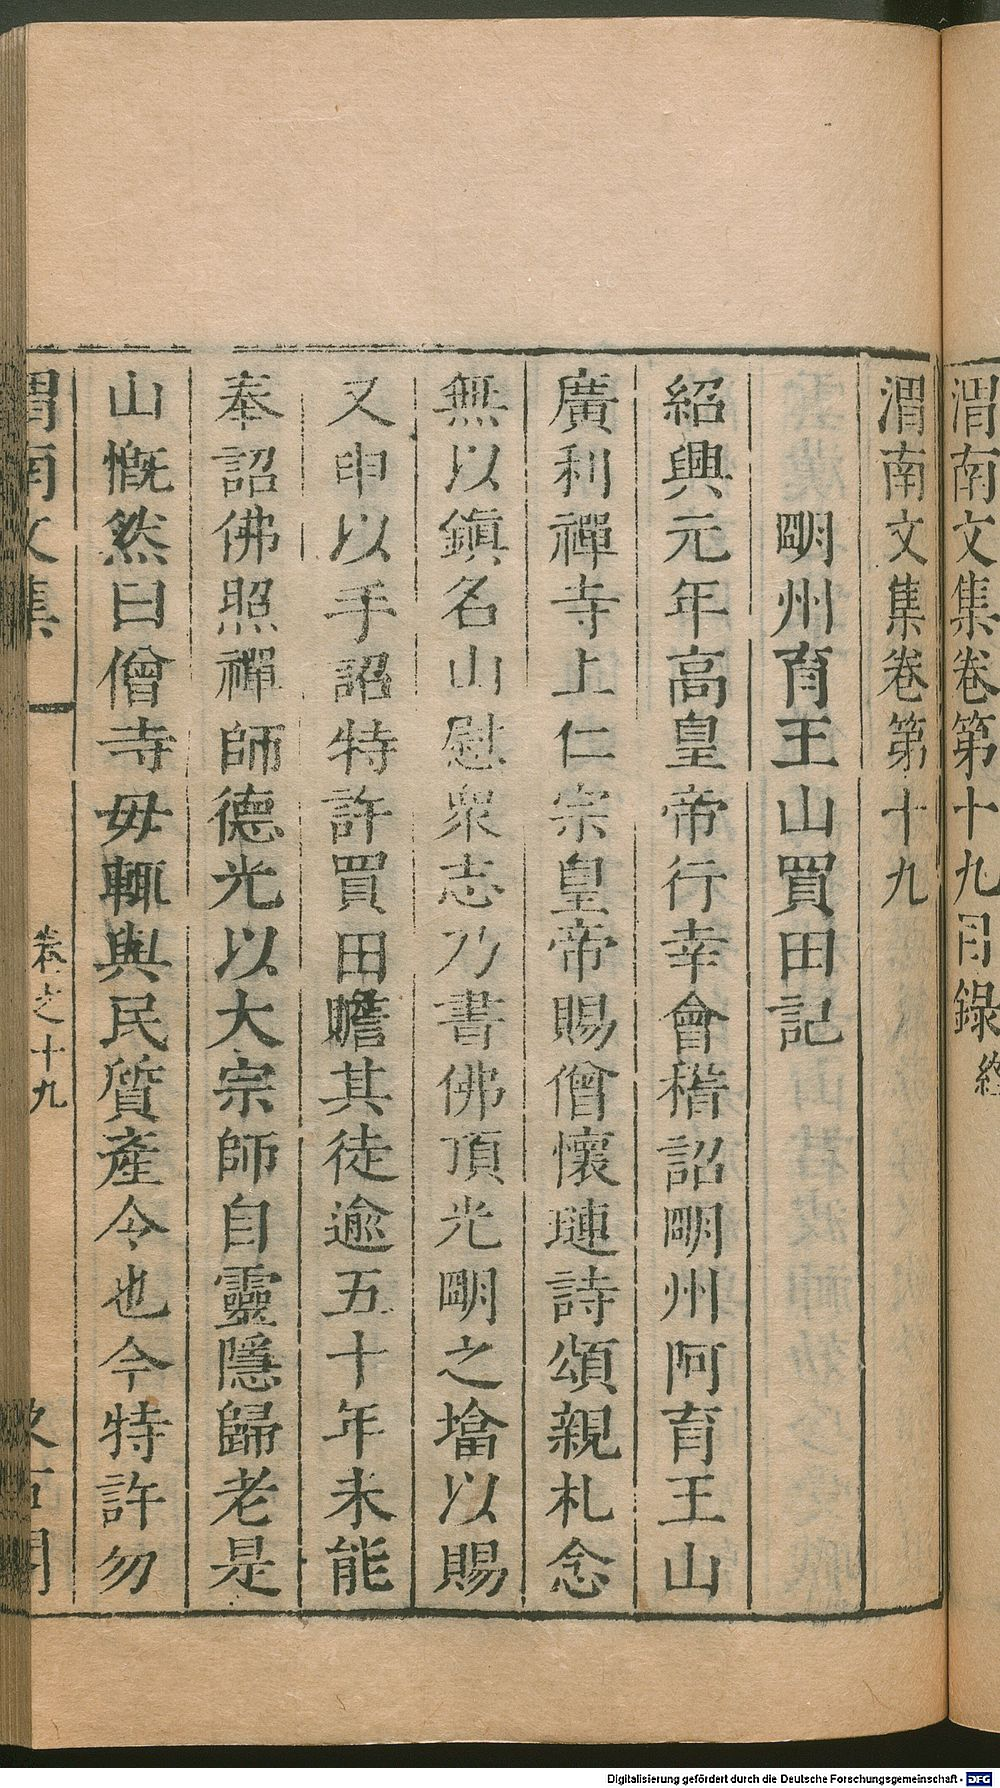 渭南文集卷第十九目錄 終
渭南文集卷第十九
明州育王山買田記
紹興元年高皇帝行幸會稽詔明州阿育王山
廣利禪寺上仁宗皇帝賜僧懷璉詩頌親札念
無以鎮名山慰衆志乃書佛頂光明之㙮以賜
又申以手詔特許買田贍其徒逾五十年未能
奉詔佛照禪師德光以大宗師自靈隱歸老是
山慨然曰僧寺毋輒與民質產令也今特許勿
渭南文集 卷之十九 汲古閣
Digitalisierung gefördert durch die Deutsche Forschungsgemeinschaft - DFG